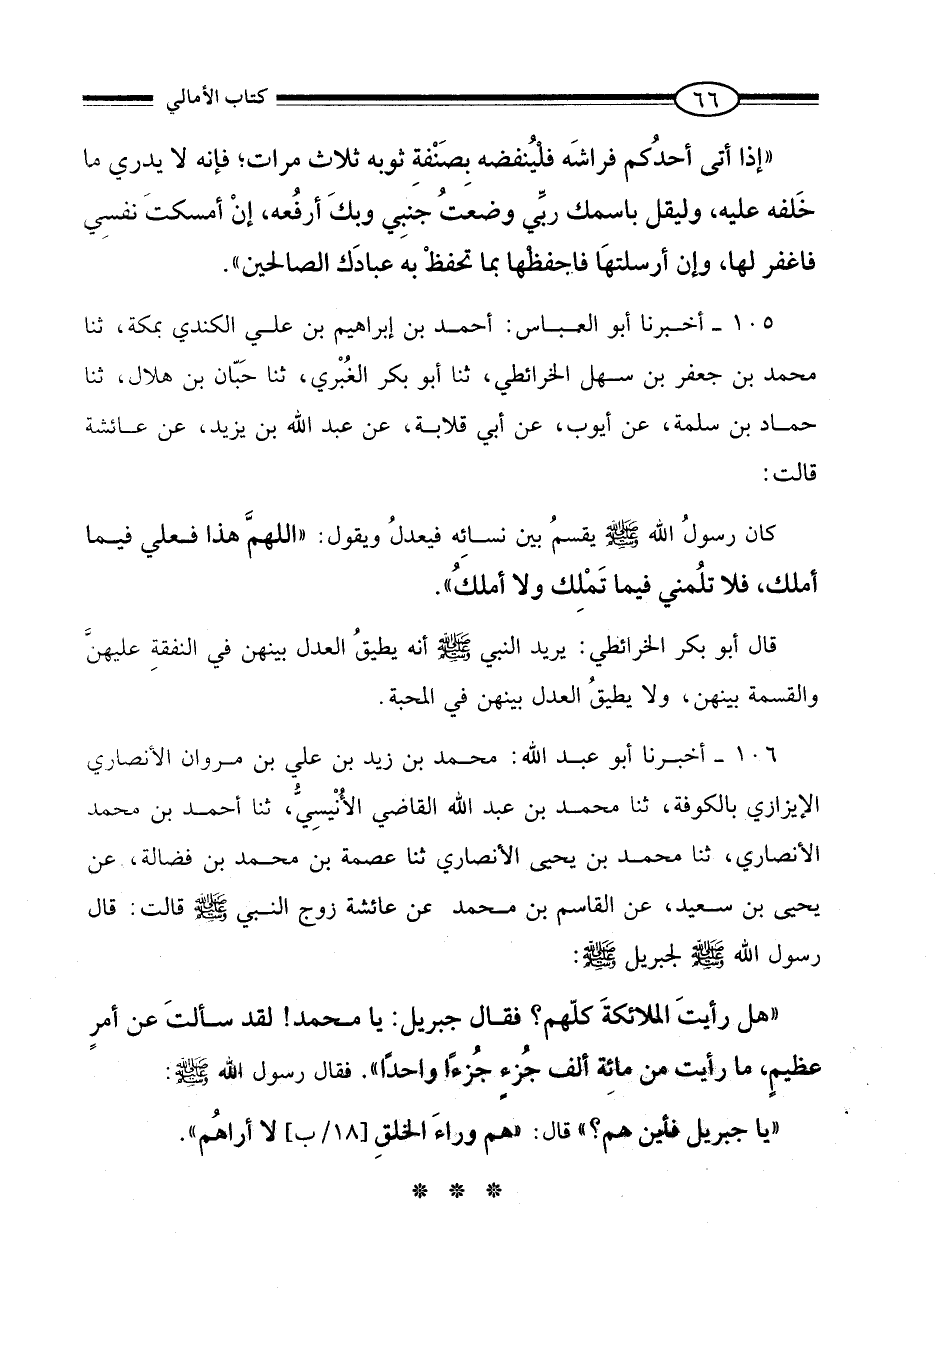 ٦٦ كتاب الأمالي
«إذا أتى أحدُكم فراشَه فلْيُنفضه بِصَنْفةِ ثوبه ثلاث مرات؛ فإنه لا يدري ما
خَلفه عليه، وليقل باسمك ربِّي وضعتُ جنبِي وبكَ أرفُعه، إنْ أمسكتَ نفسِي
فاغفر لها، وإن أرسلتهَا فاحفظْها بما تحفظْ به عبادَك الصالحين».
١٠٥ ـ أخبرنا أبو العباس: أحمد بن إبراهيم بن علي الكندي بمكة، ثنا
محمد بن جعفر بن سهل الخرائطي، ثنا أبو بكر الغُبْري، ثنا حَبّان بن هلال، ثنا
حماد بن سلمة، عن أيوب، عن أبي قلابة، عن عبد الله بن يزيد، عن عائشة
قالت:
كان رسولُ الله ﷺ يقسمُ بين نسائِه فيعدلُ ويقول: «اللهمَّ هذا فعلي فيما
أملك، فلا تلُمني فيما تَمْلِك ولا أملكُ».
قال أبو بكر الخرائطي: يريد النبي ﷺ أنه يطيقُ العدل بينهن في النفقةِ عليهنَّ
والقسمة بينهن، ولا يطيقُ العدل بينهن في المحبة.
١٠٦ ـ أخبرنا أبو عبد الله: محمد بن زيد بن علي بن مروان الأنصاري
الإيزازي بالكوفة، ثنا محمد بن عبد الله القاضي الأُنْيسِيُّ، ثنا أحمد بن محمد
الأنصاري، ثنا محمد بن يحيى الأنصاري ثنا عصمة بن محمد بن فضالة، عن
يحيى بن سعيد، عن القاسم بن محمد عن عائشة زوج النبي ﷺ قالت: قال
رسول الله ﷺ لجبريل ﷺ:
«هل رأيتَ الملائكةَ كلّهم؟ فقال جبريل: يا محمد! لقد سألتَ عن أمرٍ
عظيمٍ، ما رأيت من مائة ألف جُزءٍ جُزءًا واحدًا». فقال رسول الله ﷺ:
«يا جبريل فأين هم؟» قال: «هم وراءَ الخلقِ [١٨/ ب] لا أراهُم».
* * *